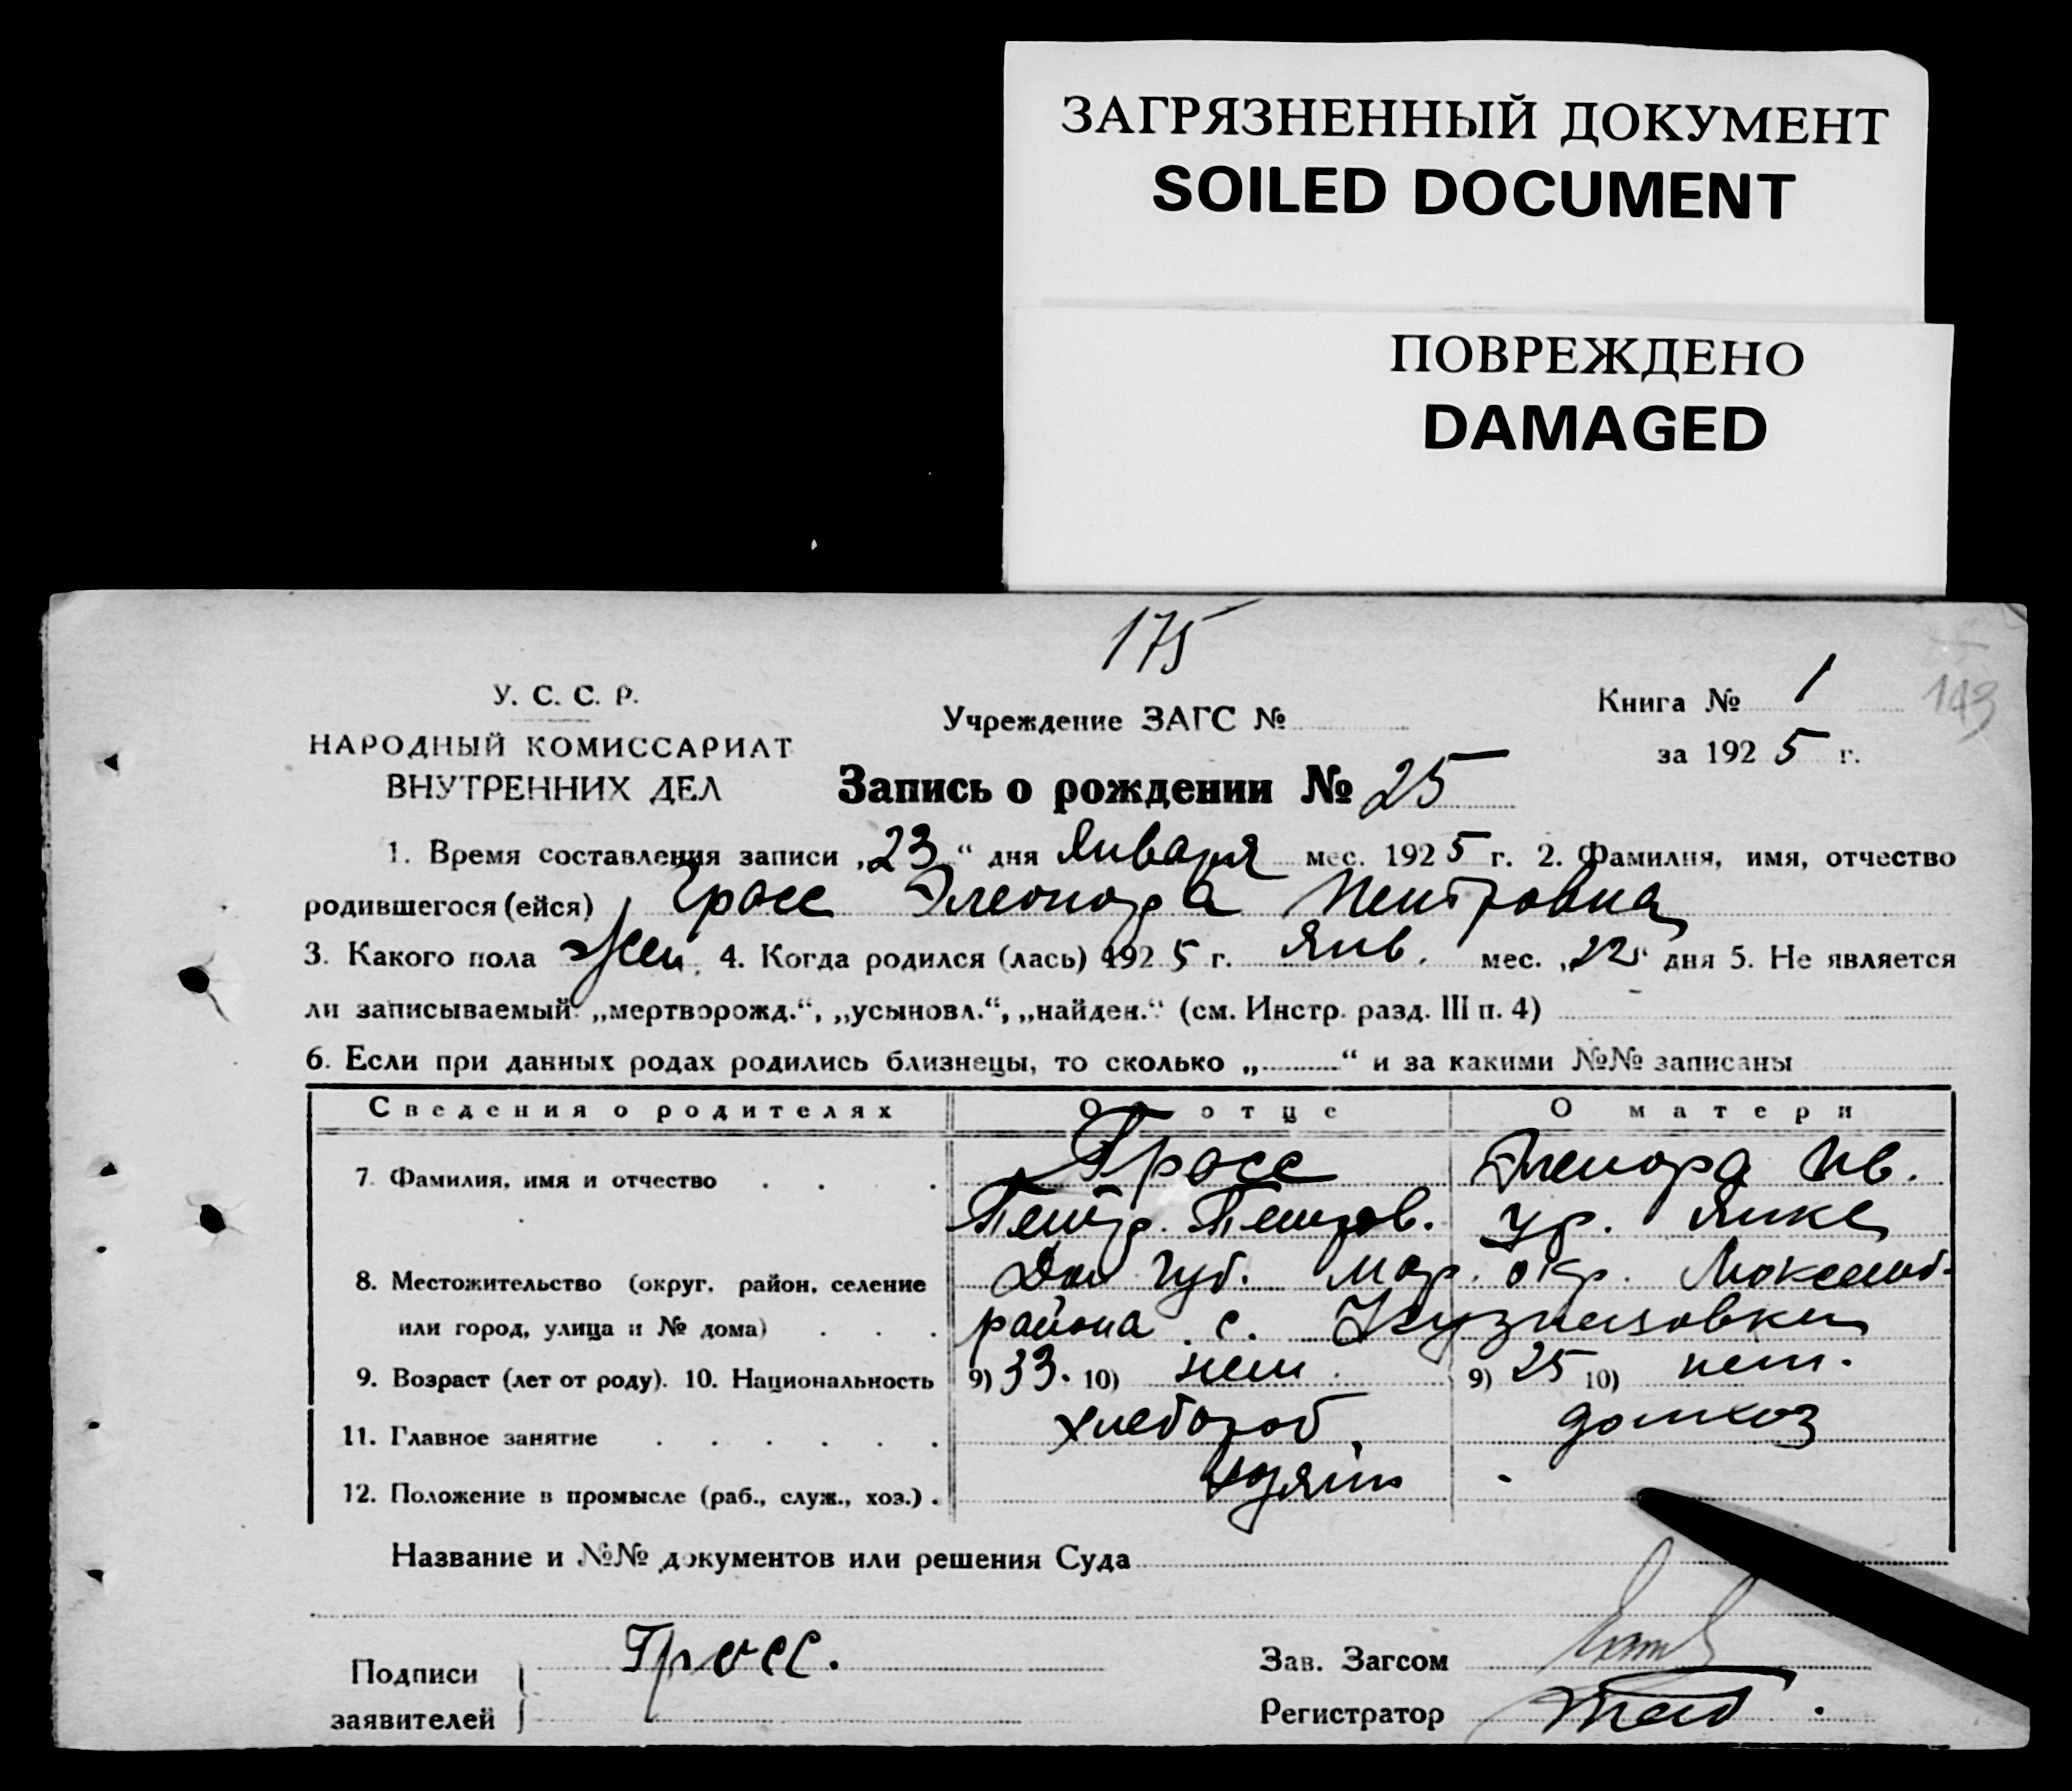 ЗАГРЯЗНЕННЫЙ ДОКУМЕНТ
SOILED DOCUMENT
ПОВРЕЖДЕНО
DAMAGED
175
У. С. С. Р.
НАРОДНЫЙ КОМИССАРИАТ
ВНУТРЕННИХ ДЕЛ
Учреждение ЗАГС №
Книга № 1
143
за 1925 г.
Запись о рождении № 25
1. Время составления записи „23“ дня Января мес. 1925 г. 2. Фамилия, имя, отчество
родившегося (ейся) Гросс Элеонора Петровна
3. Какого пола жен. 4. Когда родился (лась) 1925 г. Янв. мес. „22“ дня 5. Не является
ли записываемый: „мертворожд.“, „усыновл.“, „найден.“ (см. Инстр. разд. III п. 4) –
6. Если при данных родах родились близнецы, то сколько „..........“ и за какими №№ записаны
Сведения о родителях Об отце О матери
7. Фамилия, имя и отчество . . . . Гросс Элеонора Ив.
Петр. Петров. ур. Янке
8. Местожительство (округ, район, селение Дон губ. Мар. окр.
или город, улица и № дома) . . . района с. Кузнецовки
9. Возраст (лет от роду). 10. Национальность 9) 33. 10) нем. 9) 25 10) нем.
11. Главное занятие . . . . . . хлебороб, домхоз
12. Положение в промысле (раб., служ., хоз.) . хозяин -
Название и №№ документов или решения Суда
Подписи
заявителей
Гросс.
Зав. Загсом
Регистратор